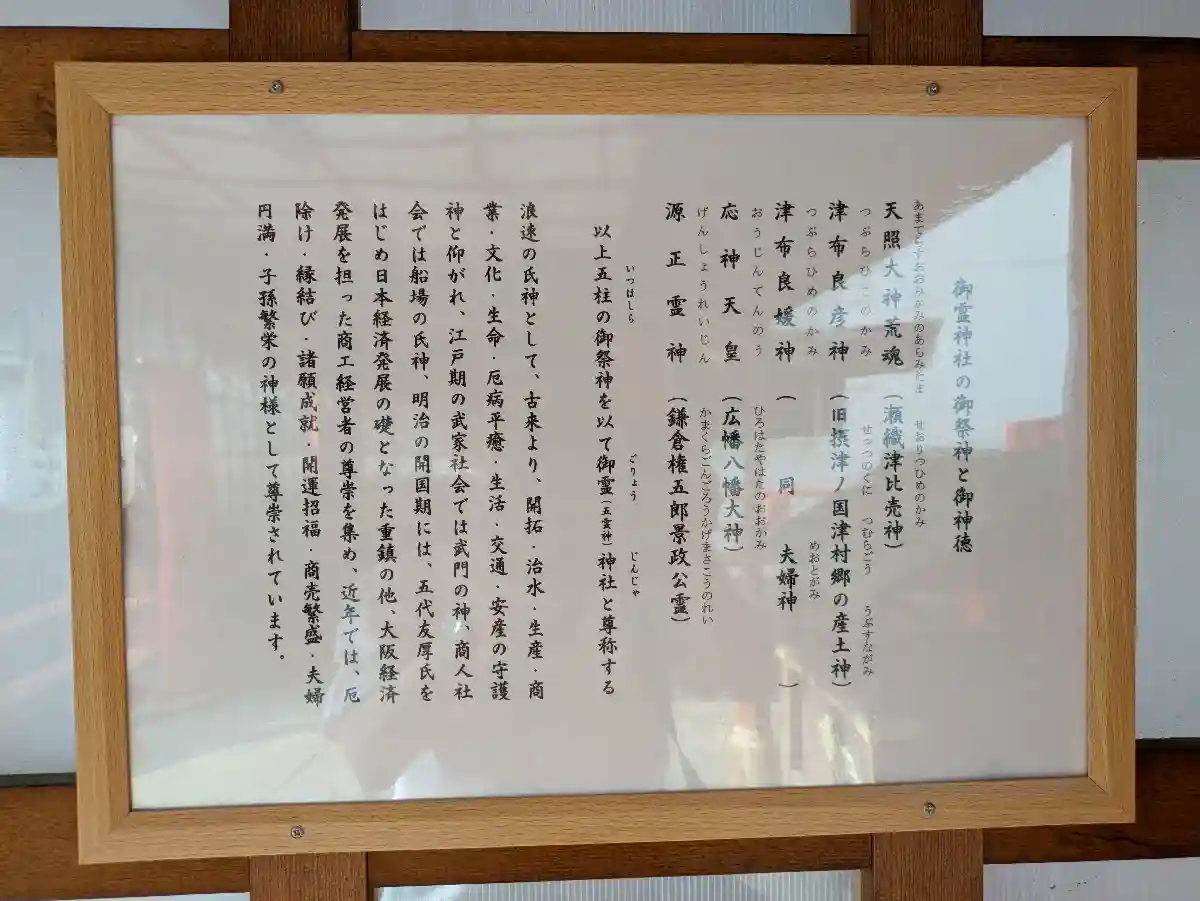 御霊神社の御祭神と御神徳
あまてらすおおみかみのあらみたま　せおりつひめのかみ
天照大神荒魂（瀬織津比売神）
つぶらひこのかみ　せっつのくに　つむらごう　うぶすながみ
津布良彦神（旧摂津ノ国津村郷の産土神）
つぶらひめのかみ　めおとがみ
津布良媛神（　同　夫婦神　）
おうじんてんのう　ひろはたやはたのおおがみ
応神天皇（広幡八幡大神）
げんしょうれいじん　かまくらごんごろうかげまさこうのれい
源正霊神（鎌倉権五郎景政公霊）
いつはしら　ごりょう　じんじゃ
以上五柱の御祭神を以て御霊（五霊神）神社と尊称する
浪速の氏神として、古来より、開拓・治水・生産・商
業・文化・生命・厄病平癒・生活・交通・安産の守護
神と仰がれ、江戸期の武家社会では武門の神、商人社
会では船場の氏神、明治の開国期には、五代友厚氏を
はじめ日本経済発展の礎となった重鎮の他、大阪経済
発展を担った商工経営者の尊崇を集め、近年では、厄
除け・縁結び・諸願成就・開運招福・商売繁盛・夫婦
円満・子孫繁栄の神様として尊崇されています。